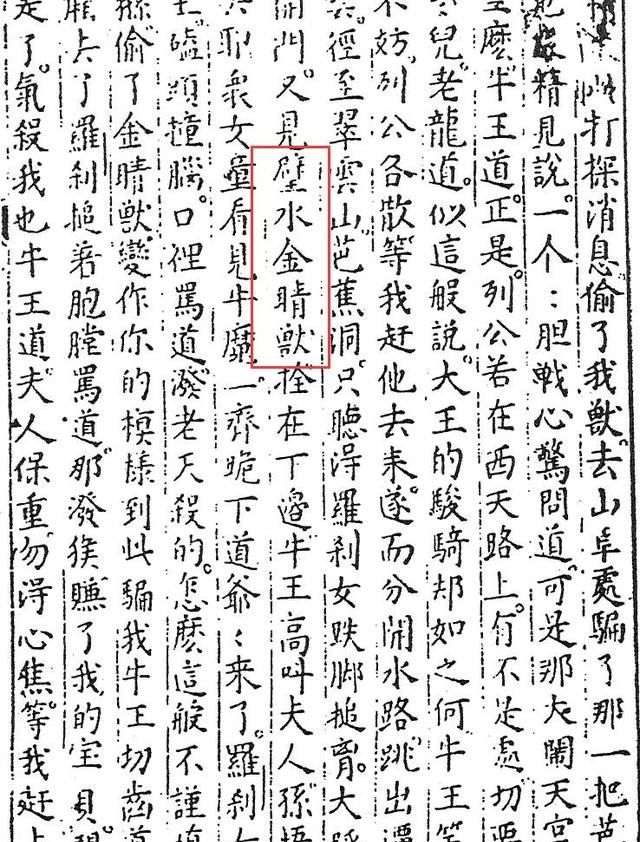 打探消息偷了我獸去山卓處騙了那一把芭
精見說一个：胆戰心驚問道可是那大鬧天宮
麽牛王道正是列公若在西天路上有不是處切要
兒老龍道似這般說大王的駿騎却如之何牛王笑
不妨列公各散等我赶他去来遂而分開水路跳出潭
徑至翠雲山芭蕉洞只聽淂羅刹女跌脚搥胷大呼
開門又見壁水金睛獸拴在下邉牛王高叫夫人孫悟
衆女童看見牛魔一齊跪下道爺：来了羅刹女
磕頭撞腦口裡罵道潑老天殺的怎麽這般不謹慎
偷了金睛獸變作你的模樣到此騙我牛王切齒道
了羅刹搥着胞膛罵道那潑猴賺了我的宝貝
是了氣殺我也牛王道夫人保重勿淂心焦等我赶上